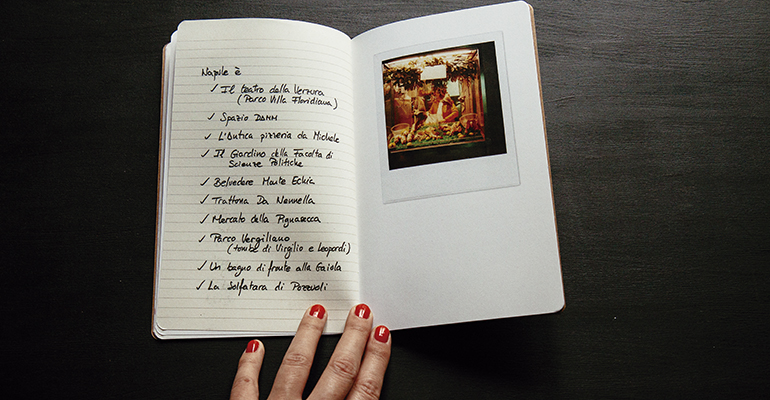 Napile è
✓ Il teatro della Verzura
(Parco Villa Floridiana)
✓ Spazio DAMM
✓ L'Antica pizzeria da Michele
✓ Il Giardino della Facoltà di
Scienze Politiche
✓ Belvedere Monte Echia
✓ Trattoria Da Nennella
✓ Mercato della Pignasecca
✓ Parco Vergiliano
(tombe di Virgilio e Leopardi)
✓ Un bagno di fronte alla Gaiola
✓ La Solfatara di Pozzuoli